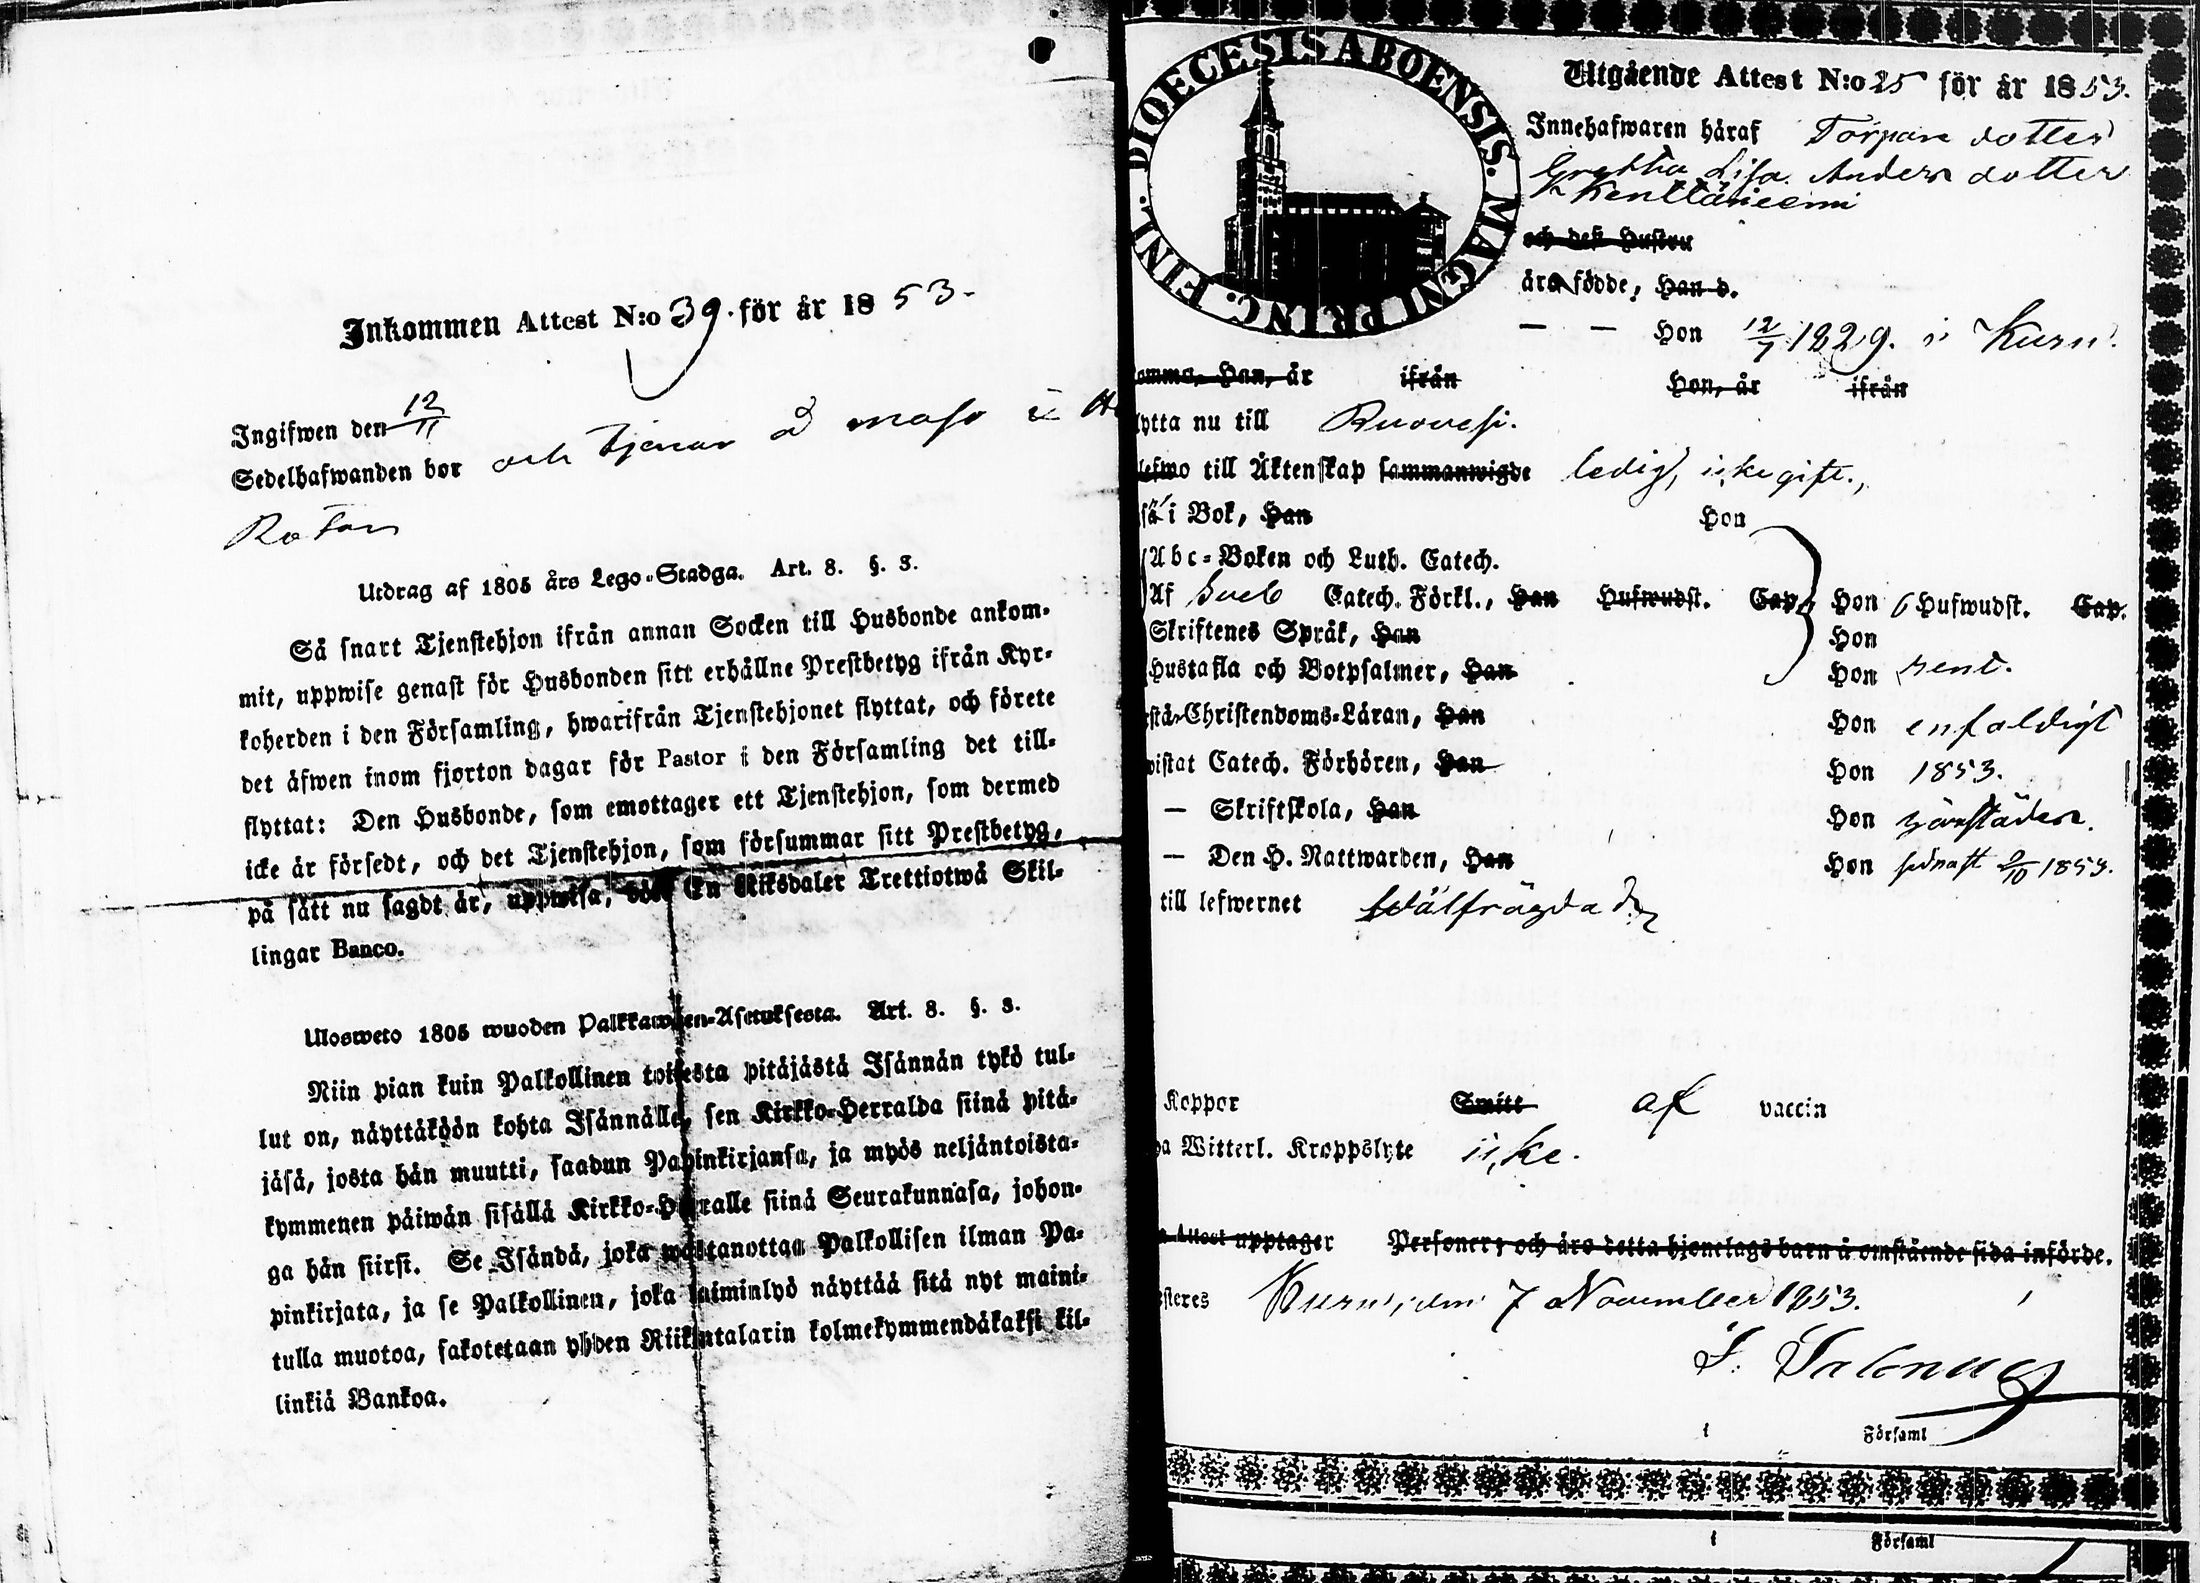 Inkommen Attest N:o 39. för år 1853.
Ingifwen den 12/11
Sedelhafwanden bor och tjenar å
Utdrag af 1805 års Lego-Stadga. Art. 8. §. 3.
Så snart Tjenstehjon ifrån annan Socken till Husbonde ankom-
mit, uppwise genast för Husbonden sitt erhållne Prestbetyg ifrån Kyr-
koherden i den Församling, hwarifrån Tjenstehjonet flyttat, och förete
det äfwen inom fjorton dagar för Pastor i den Församling det till-
flyttat: Den Husbonde, som emottager ett Tjenstehjon, som dermed
icke är försedt, och det Tjenstehjon, som försummar sitt Prestbetyg,
på sätt nu sagdt är, uppwisa, böte En Riksdaler Trettiotwå Skil-
lingar Banco.
Ulosweto 1805 wuoden Palkkawäen-Asetuksesta. Art. 8. §. 3.
Niin pian kuin Palkollinen toisesta pitäjästä Isännän tykö tul-
lut on, näyttäköön kohta Isännälle, sen Kirkko-Herralda siinä pitä-
jäsä, josta hän muutti, saadun Papinkirjansa, ja myös neljäntoista-
kymmenen päiwän sisällä Kirkko-Herralle siinä Seurakunnasa, johon-
ga hän siirsi. Se Isändä, joka wastanottaa Palkollisen ilman Pa-
pinkirjata, ja se Palkollinen, joka laiminlyö näyttää sitä nyt maini-
tulla muotoa, sakotetaan yhden Riikintalarin kolmekymmendäkaksi kil-
linkiä Bankoa.
DIOECESIS ABOENSIS. MAGNI PRINC. FINL.
Utgående Attest N:o 25 för år 1853.
Innehafwaren häraf Torpare dotter
Gretha Lisa Anders dotter
Kenttäniemi
och deß Hustru
äro födde, Han d.
— — Hon 12/7 1829. i Kuru.
omma, Han, år ifrån Hon, år ifrån
lytta nu till Ruovesi.
lefwo till Äktenskap sammanwigde ledig, icke gift.
sä i Bok, Han Hon
Abc-Boken och Luth. Catech.
Af Sveb Catech. Förkl., Han Hufwudst. Cap. Hon 6 Hufwudst. Cap.
Skriftenes Språk, Han Hon
Hustafla och Botpsalmer, Han Hon rent.
stå Christendoms-Läran, Han Hon enfaldigt
wistat Catech. Förhören, Han Hon 1853.
— Skriftskola, Han Hon
— Den H. Nattwarden, Han Hon sednast 9/10 1853.
till lefwernet wälfrägdad
Koppor Smitt af vaccin
ga Witterl. Kroppslyte icke.
n Attest upptager Personer; och äro detta hjonelags barn å omstående sida införde.
steres Kuru, den 7 November 1853.
i Församl
i Församl